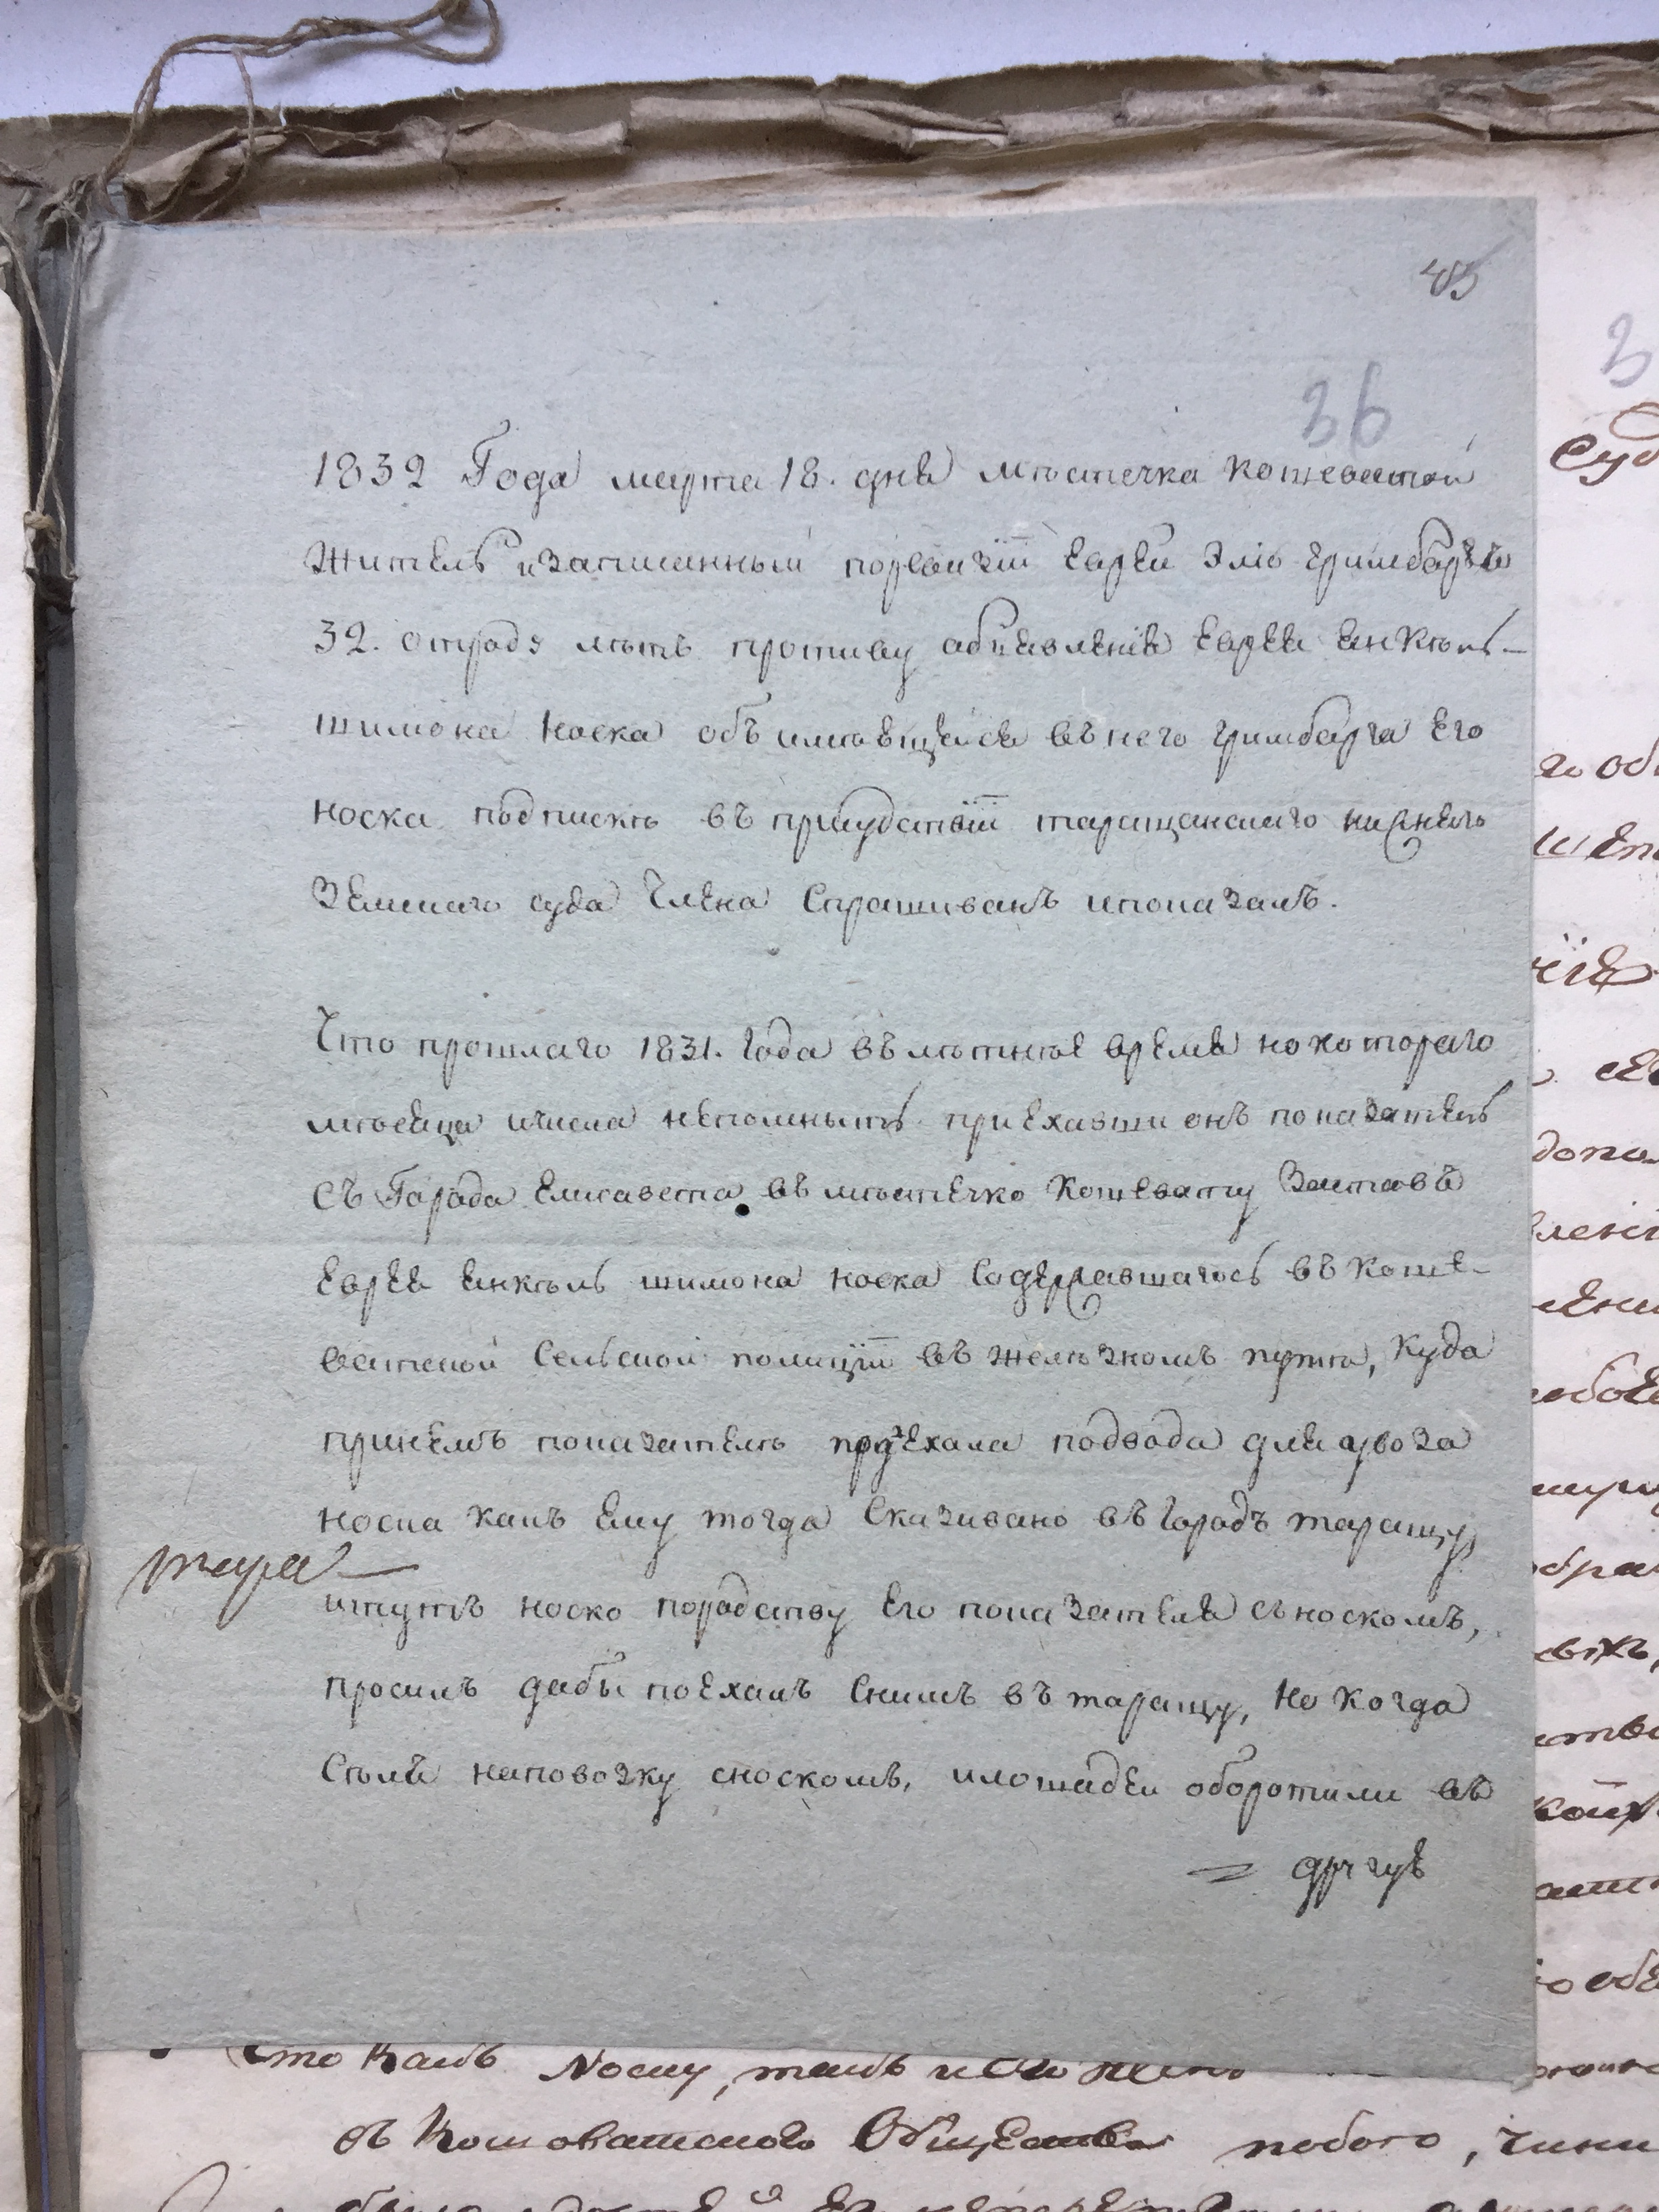 45
36
1832 Года марта 18. дня мѣстечка Кошеватой
Житель и записанный поревизіи Еврей Эль Гримбаргъ
32. отродя лѣтъ противу объявленія Еврея Янкѣль-
Шимона Носка объ имѣвщейся въ него Гримбарга Его
Носка подпискѣ въ присудствіи таращанскаго нижнего
Земскаго суда Члена Спрашиванъ ипоказалъ.
Что прошлаго 1831. Года въ лѣтнѣе время но котораго
мѣсяца ичисла непомнитъ приехавши онъ показатель
съ Города Елисавета въ мѣстечко Кошевату Засталъ
Еврея Янкѣль шимона носка Содержавшагось въ Коше-
ватской Сельской полиціи въ желѣзномъ путѣ, Куда
принемъ показателѣ подъехала подвода для увоза
Носка какъ Ему тогда Сказивано въ Городъ таращу
тара-
итутъ носко породству Его показателя съ носкомъ,
просилъ дабы поехалъ Снимъ въ таращу, Но Когда
Сѣлъ наповозку сноскомъ, илошадей оборотили въ
= другую
Что Какъ Носку, такъ и
съ Кошоватского Общества побого, чини
Суд